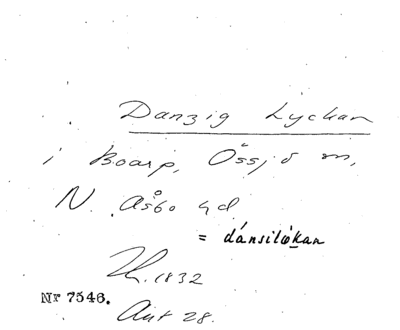 Danzig Lyckan
i Boarp, Össjö sn,
N. Åsbo hd.
= dánsilỳkan
1832
Nr 7546.
Akt 28.